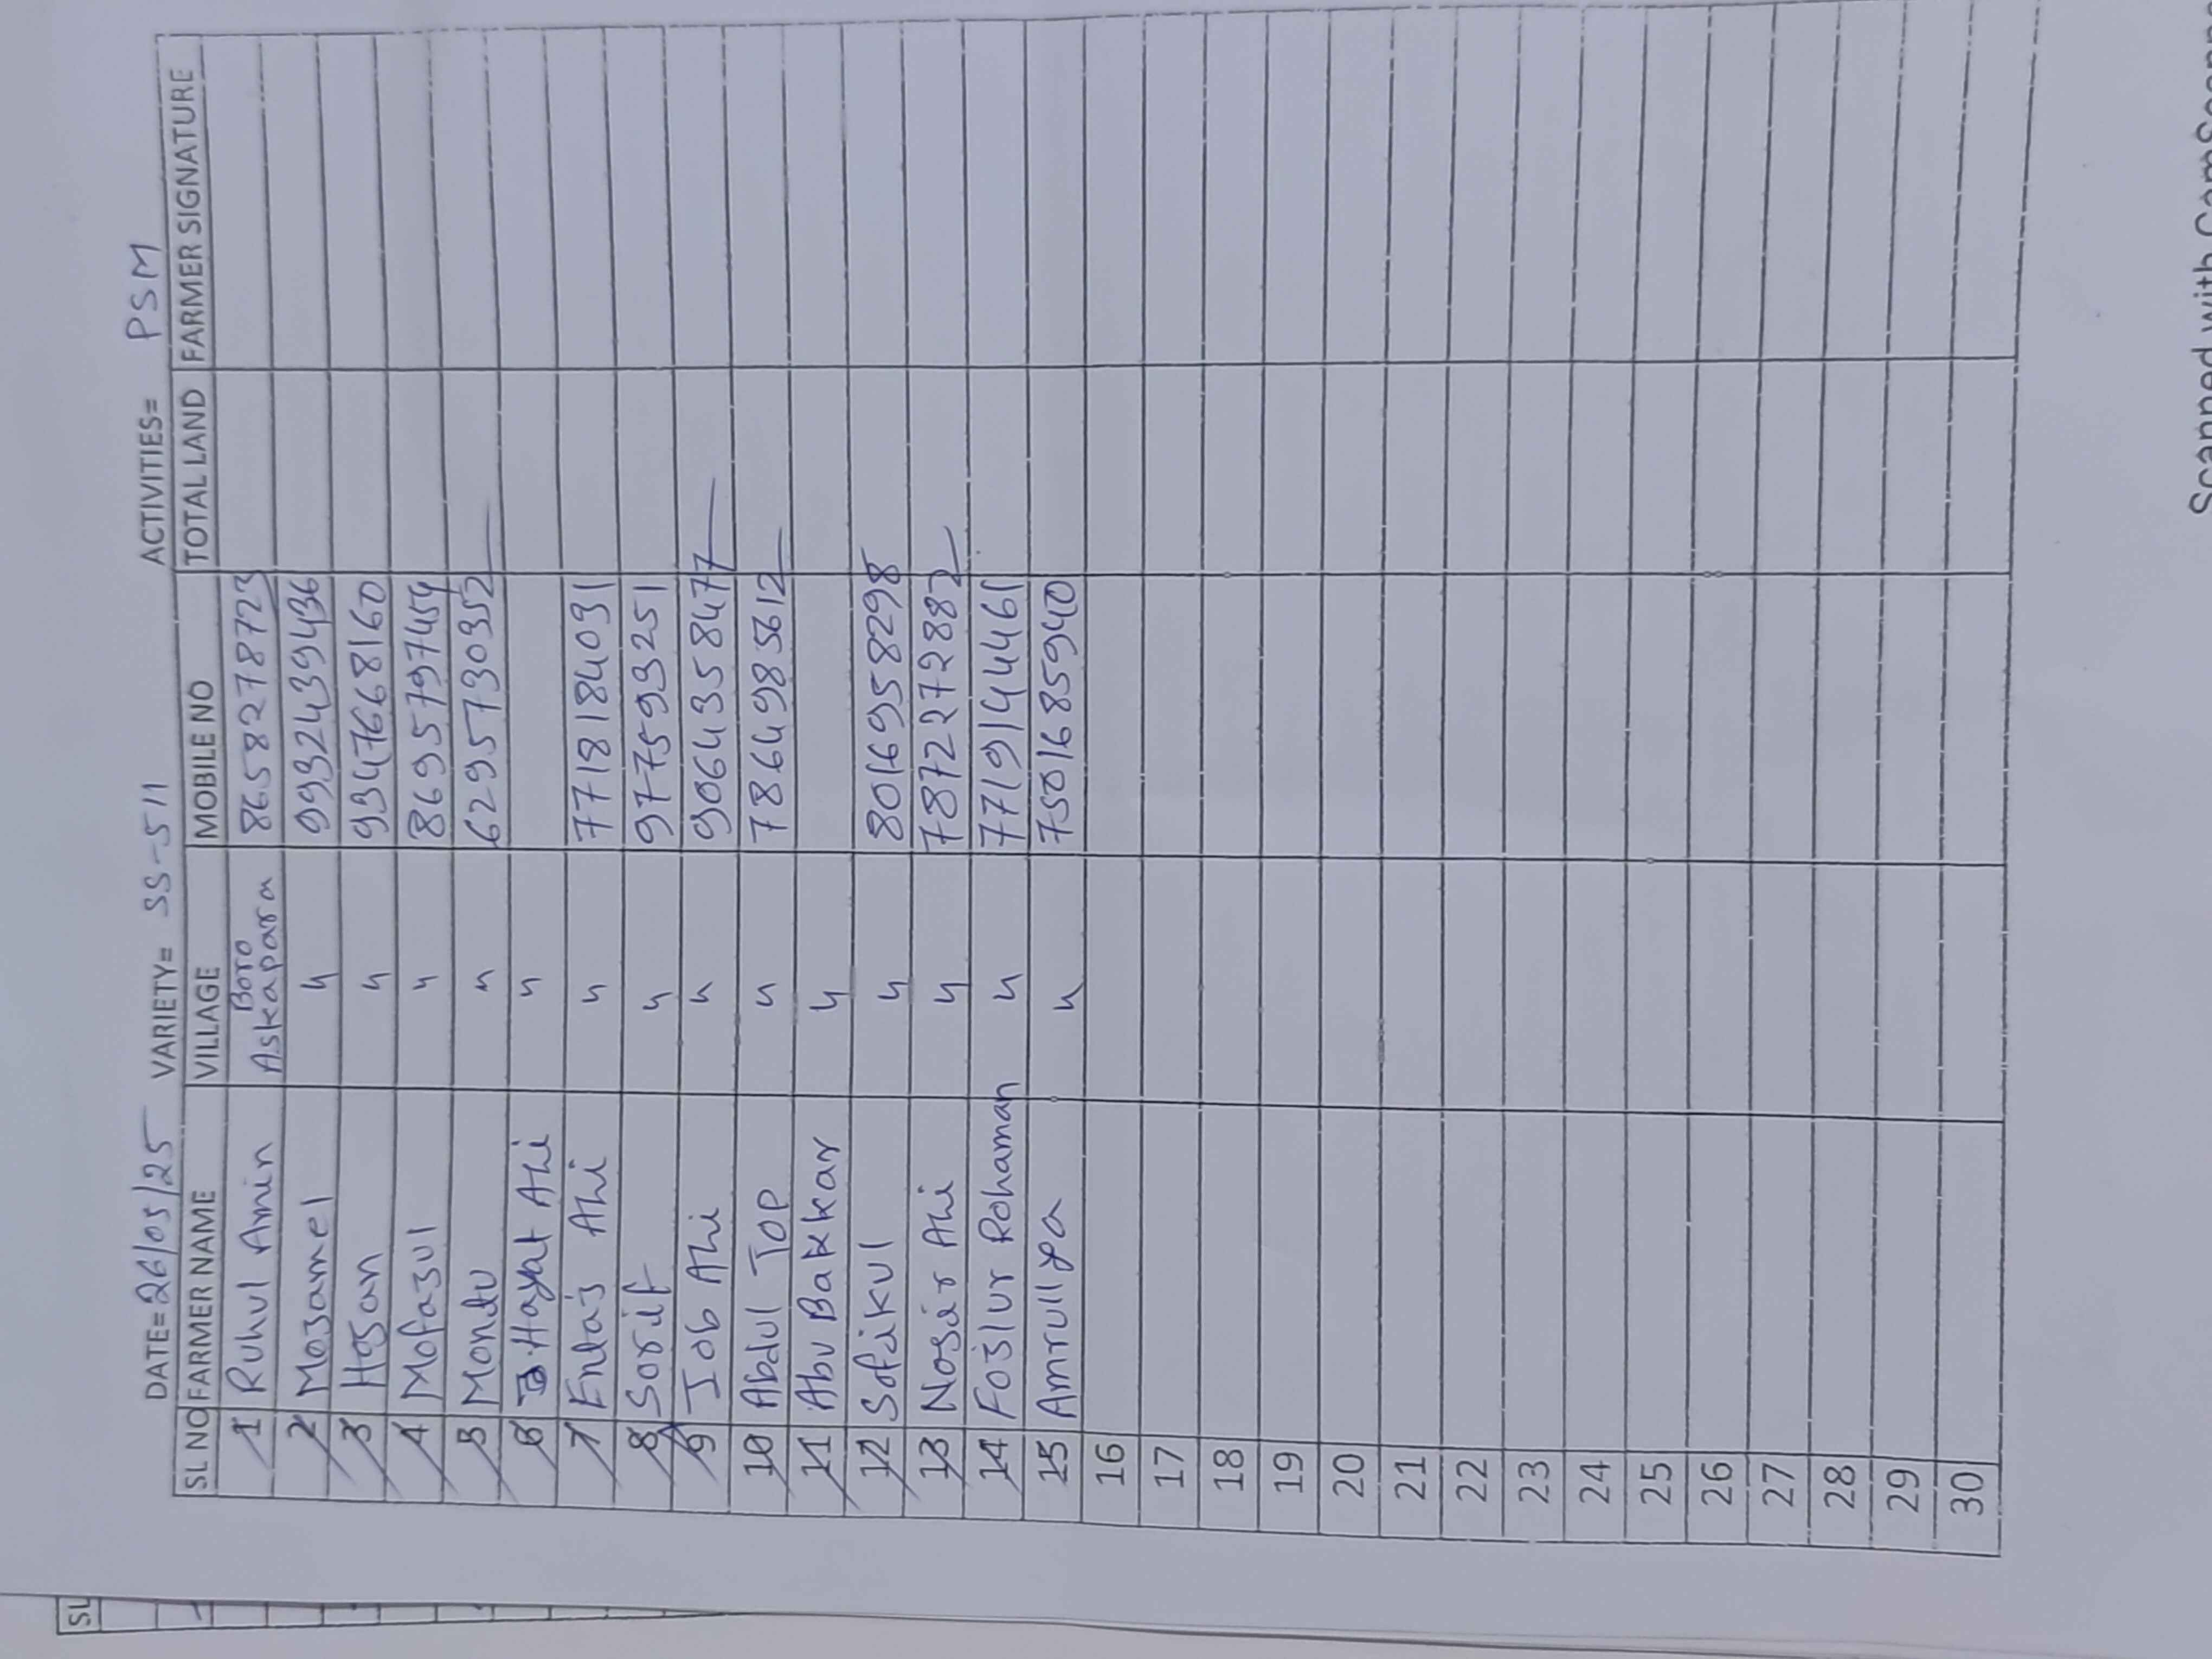 DATE=26/05/25 VARIETY= SS-511 ACTIVITIES= PSM
SL NO FARMER NAME VILLAGE MOBILE NO TOTAL LAND FARMER SIGNATURE
1 Ruhul Amin Boro Askapara 8658278723
2 Mozamel " 9932439436
3 Hosan " 9347668160
4 Mofazul " 8695797454
5 Montu " 6295730352
6 Hayat Ali "
7 Entaj Ali " 7718184031
8 Sorif " 9775993251
9 Job Ali " 9064358477
10 Abdul TOP " 7864985612
11 Abu Bakkar "
12 Sofikul " 8016958298
13 Nosir Ali " 7872272882
14 Fozlur Rohaman " 7719144461
15 Amrullya " 7501685940
16
17
18
19
20
21
22
23
24
25
26
27
28
29
30
SL